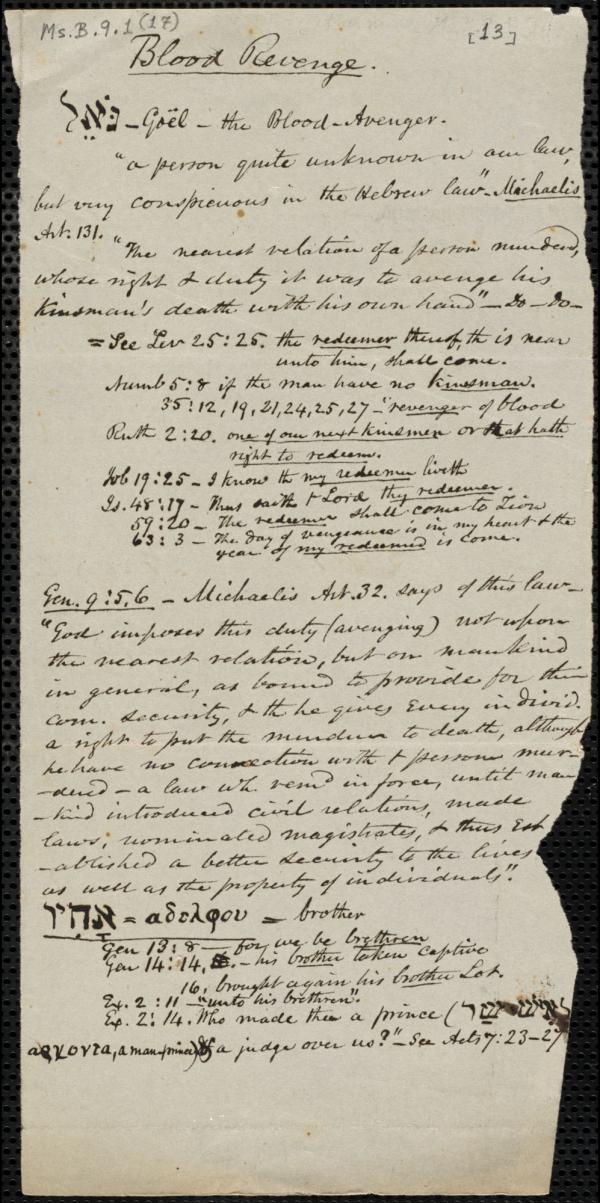 Ms.B.9.1 (17)
[13]
Blood Revenge.
גֹּאֵל – Goël – the Blood-Avenger.
"a person quite unknown in our law,
but very conspicuous in the Hebrew law" – Michaelis
Art. 131.
"The nearest relation of a person murdered,
whose right & duty it was to avenge his
kinsman's death with his own hand" – Do – Do –
= See Lev 25:25. the redeemer thereof, th is near
unto him, shall come.
Numb 5:8 if the man have no kinsman.
35:12, 19, 21, 24, 25, 27 – "revenger of blood
Ruth 2:20. one of our next kinsmen or that hath
right to redeem.
Job 19:25 – I know th my redeemer liveth
Is. 48:17 – Thus saith t Lord thy redeemer.
59:20 – The redeemer shall come to Zion
63:3 – The day of vengeance is in my heart & the
year of my redeemed is come.
Gen. 9:5,6 – Michaelis Art. 32. says of this law –
"God imposes this duty (avenging) not upon
the nearest relation, but on mankind
in general, as bound to provide for their
com. security, & th he gives every individ.
a right to put the murderer to death, although
he have no connection with t person mur-
-dered – a law wh. remd in force, until man
-kind introduced civil relations, made
laws, nominated magistrates, & thus est
-ablished a better security to the lives
as well as the property of individuals".
אָחִיךָ = αδελφου = brother
Gen 13:8 – for we be brethren
Gen 14:14, – his brother taken captive
16, brought again his brother Lot.
Ex. 2:11 – "unto his brethren".
Ex. 2:14. Who made thee a prince (
a man, prince) & a judge over us?" – See Acts 7:23–27